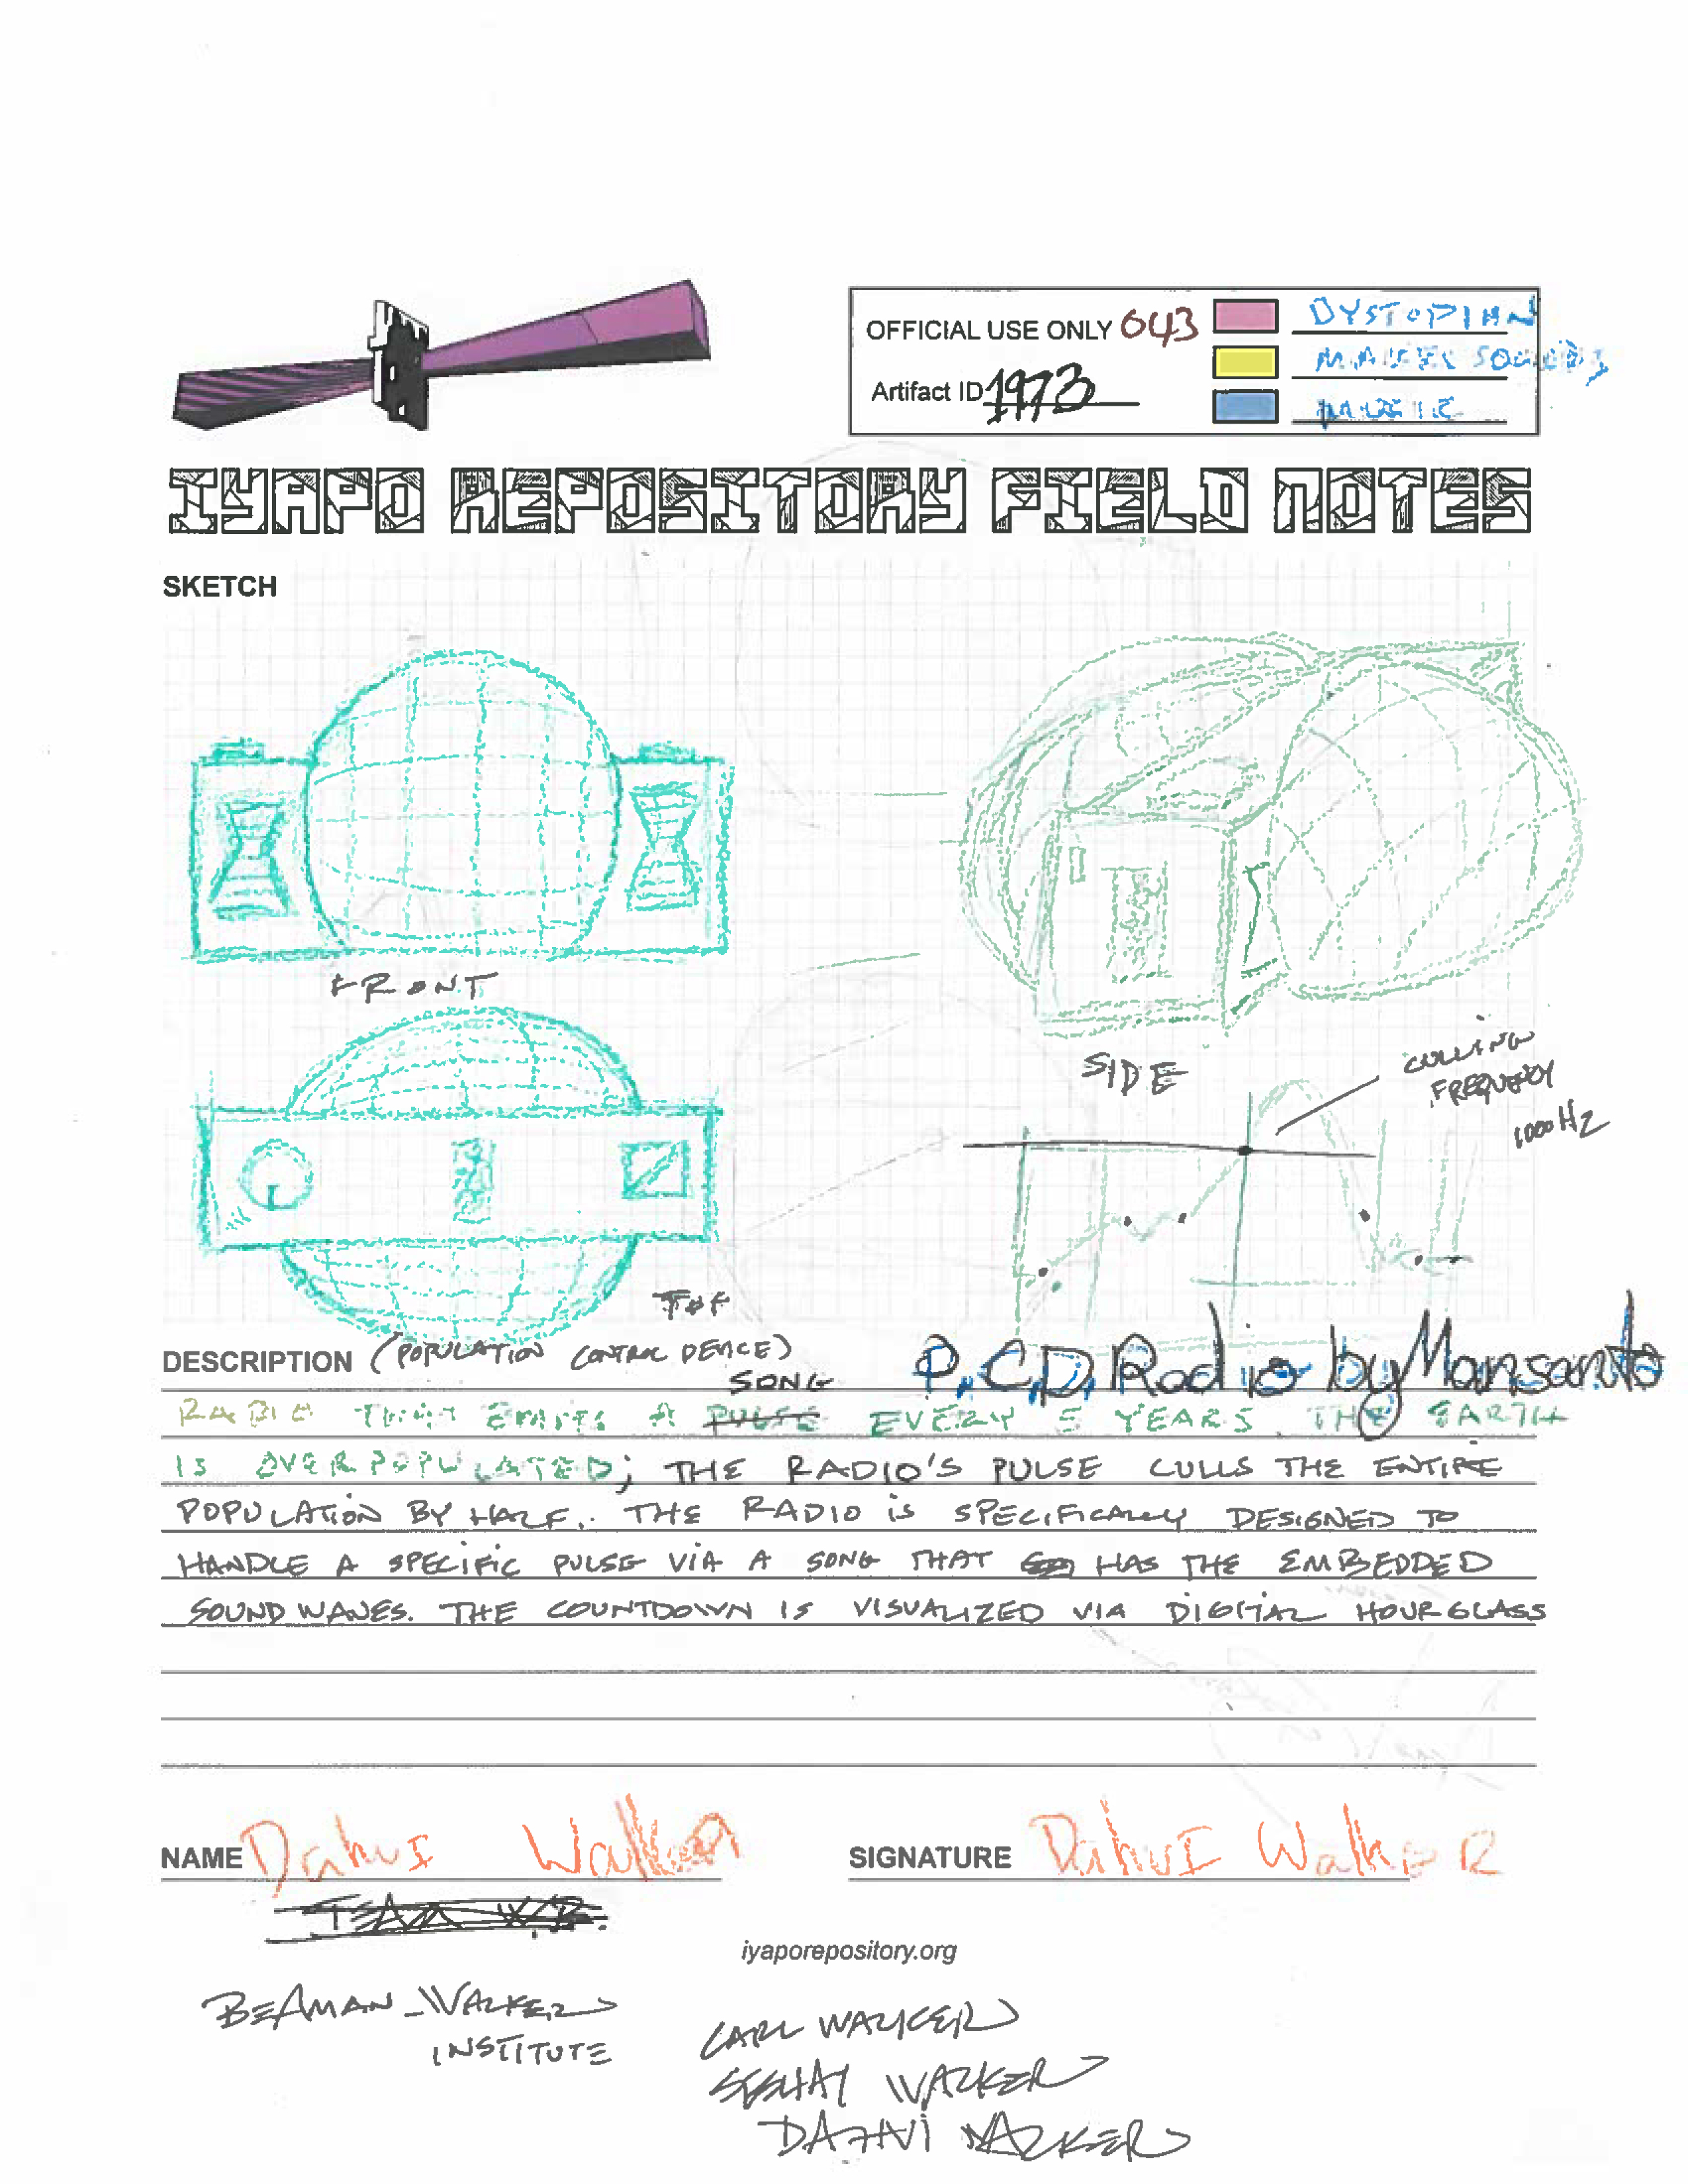 OFFICIAL USE ONLY 643
DYSTOPIAN
Artifact ID 1973
MUSIC
IYAPO REPOSITORY FIELD NOTES
SKETCH
FRONT
SIDE
CULLING
FREQUENCY
1000 Hz
TOP
DESCRIPTION (POPULATION CONTROL DEVICE)
P.C.D. Radio by Mansanto
SONG
RADIO THAT EMITS A PULSE EVERY 5 YEARS. THE EARTH
IS OVERPOPULATED; THE RADIO'S PULSE CULLS THE ENTIRE
POPULATION BY HALF. THE RADIO IS SPECIFICALLY DESIGNED TO
HANDLE A SPECIFIC PULSE VIA A SONG THAT HAS THE EMBEDDED
SOUND WAVES. THE COUNTDOWN IS VISUALIZED VIA DIGITAL HOURGLASS
NAME DahvI Walker
SIGNATURE DahvI WalkER
TEAM W.B.
iyaporepository.org
BEAMAN-WALKER
INSTITUTE
CARL WALKER
WALKER
DAHVI WALKER